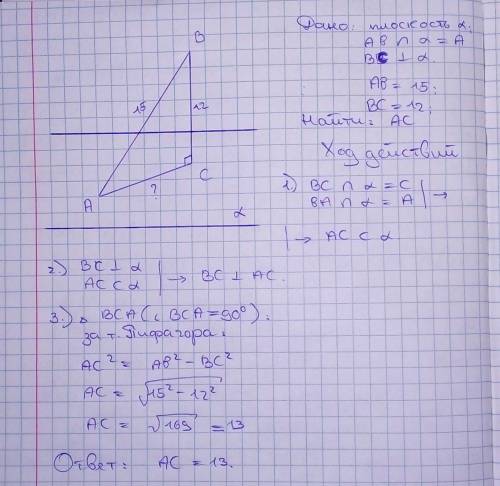 Дано: плоскость α;
AB ∩ α = A
BC ⊥ α.
AB = 15;
BC = 12;
Найти: AC
Ход действий
1) BC ∩ α = C
BA ∩ α = A | →
| → AC ⊂ α
B
15
12
C
?
A
α
2) BC ⊥ α
AC ⊂ α | → BC ⊥ AC.
3) в BCA (∟BCA = 90°):
за т. Пифагора:
AC² = AB² - BC²
AC = √15² - 12²
AC = √169 = 13
Ответ: AC = 13.